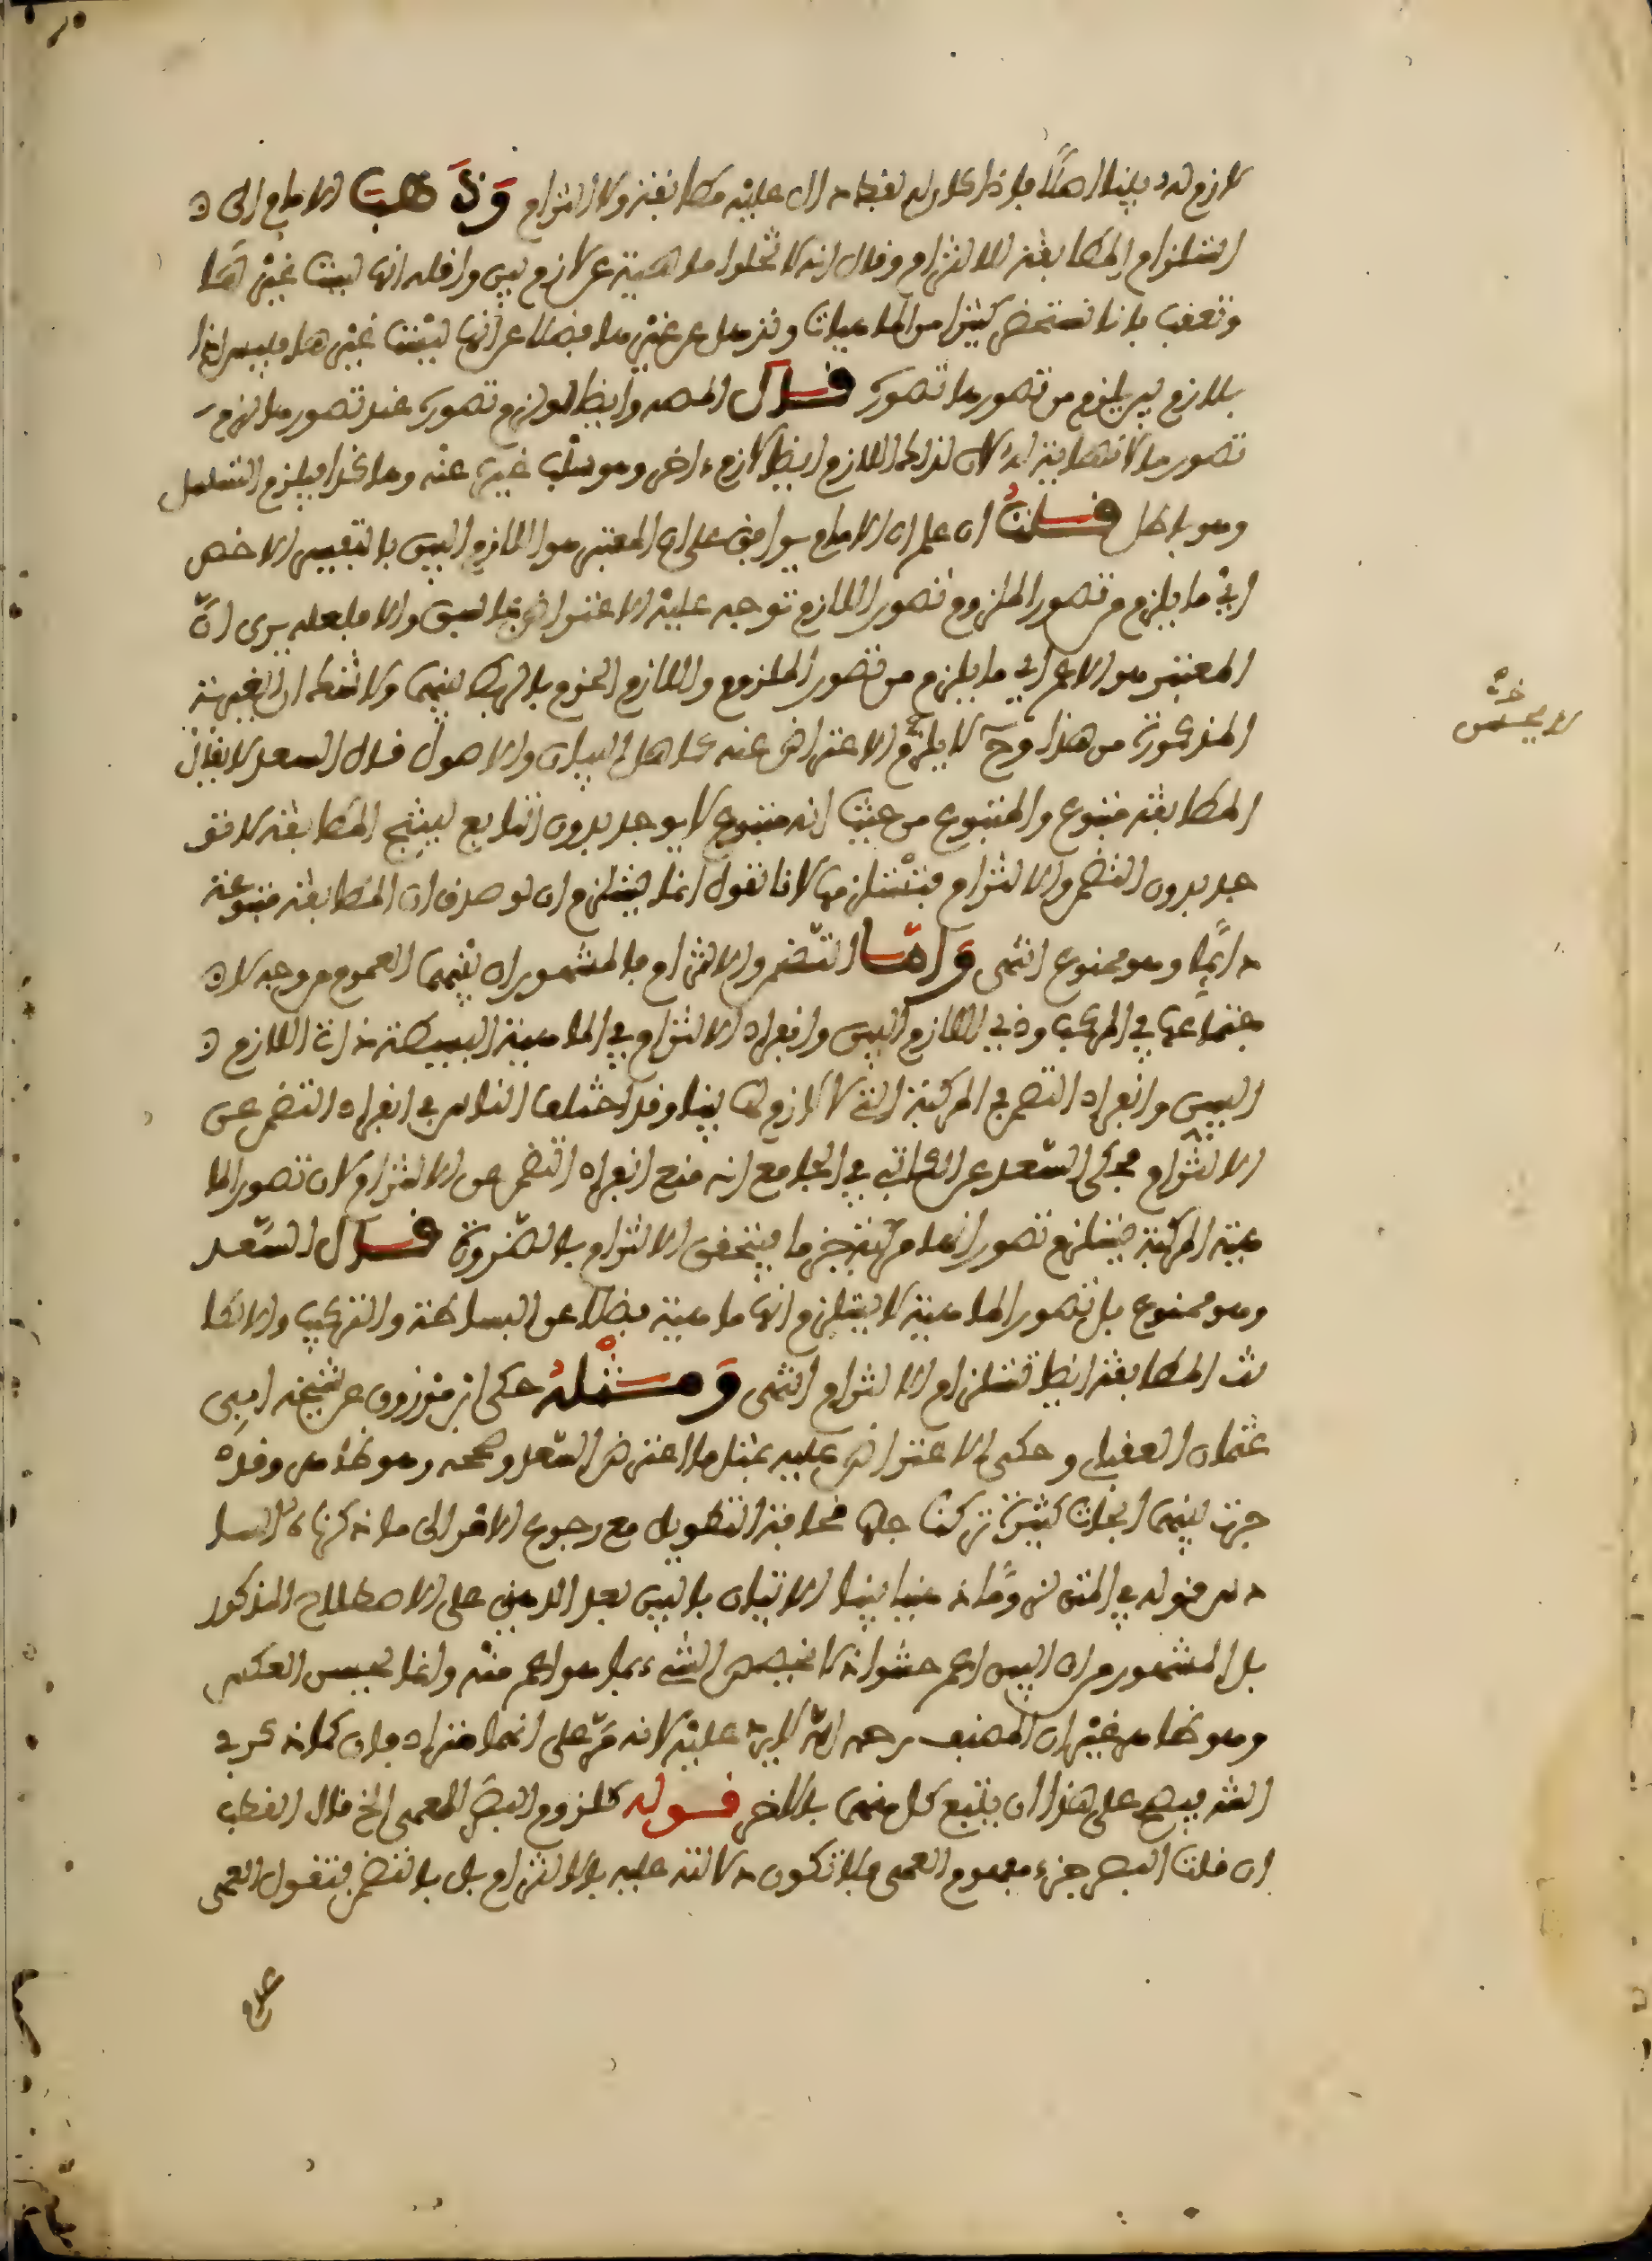 لازم له بينا اصلا فاذا كان له لفظ دال عليه مطابقة ولا التزام وذهب الامام الى ا
استلزام المطابقة للالتزام وقال انه لا تخلوا ماهية عن لازم بين واقله انها ليست غيرها
وتعقب بانا نستحضر كثيرا من الماهيات ونذهل عن غيرها فضلا عن انها ليست غيرها فليس اذا
بلازم يلزم من تصورها تصوره قال المص وايضا لو لزم تصوره عند تصورها لزم
تصور ما لا نهاية له لان لذلك اللازم ايضا لازم ءاخر وهو سلب غيره عنه وهكذا فيلزم التسلسل
وهو باطل قلت ان علم ان الامام يوافق على ان المعتبر هو اللازم البين بالتفسير الاخص
اي ما يلزم من تصور الملزوم تصور اللازم توجه عليه الاعتراض بما سبق والا فلعله يرى ان
المعتبر هو الاعم اي ما يلزم من تصور الملزوم واللازم الجزم بالربط بينهما ولا شك ان الغيرية
المذكورة من هذا وح لا يلزم الاعتراض عنه كاهل البيان والاصول قال السعد لا يقال
المطابقة متبوع والمتبوع من حيث انه متبوع لا يوجد بدون التابع لينتج المطابقة لا تو
جد بدون التضمن والالتزام فتستلزمهما لانا نقول انما يستلزم ان لو صدق ان المطابقة متبوعة
دائما وهو ممنوع انتهى واما التضمن والالتزام فالمشهور ان بينهما العموم من وجه لا
جتماعهما في المركب وذي اللازم البين وانفراد الالتزام في الماهية البسيطة ذات اللازم ا
البين وانفراد التضمن في المركبة التي لا لازم لها بينا وقد اختلف الناس في انفراد التضمن عن
الالتزام فحكى السعد عن الكاتبي في الجامع انه منع انفراد التضمن عن الالتزام لان تصور الما
هية المركبة يستلزم تصور انها مركبة جزما فيتحقق الالتزام بالضرورة قال السعد
وهو ممنوع بل تصور الماهية لا يستلزم انها ماهية فضلا عن البساطة والتركيب والا لكا
نت المطابقة ايضا تستلزم الالتزام انتهى ومثله حكى ابن مرزوق عن شيخه ابي
عثمان العقباني وحكى الاعتراض عليه بمثل ما اعترض السعد وصححه وهو ظاهر وقد
جرت بينهما ابحاث كثيرة تركنا جلها مخافة التطويل مع رجوع الاقر الى ما ذكرناه السا
دس قوله في المتن لزوما ذهنيا بينا الاتيان بالبين بعد الذهني على الاصطلاح المذكور
بل المشهور من ان البين اعم حشو اذ لا يخصص الشيء بما هو اعم منه وانما يحسن العكس
وهو ظاهر غير ان المصنف رحمه الله لا يرد عليه لانه مر على انهما مترادفان كما ذكر في
الشرح على هذا ان يتبع كل منهما بالاخر قوله كلزوم البصر للعمى الخ قال القطب
ان قلت البصر جزء مفهوم العمى فلا تكون دلالته عليه بالالتزام بل بالتضمن فنقول العمى
عدم
لا يحسن